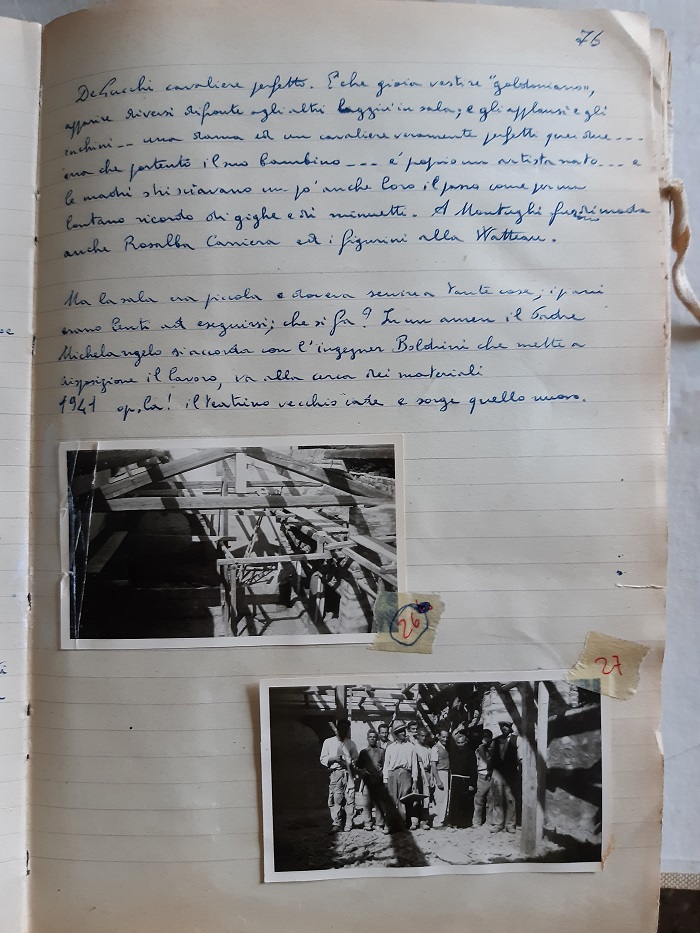 76
De Gucchi cavaliere perfetto. E che gioia vestire "goldoniano",
apparire diversi difronte agli altri laggiù in sala; e gli applausi e gli
inchini -- una dama ed un cavaliere veramente perfetti quei due ---
ma che portento il suo bambino --- è proprio un artista nato --- e
le madri strisciavano un po' anche loro il passo come per un
lontano ricordo di gighe e di minuetti. A Montughi furoni moda
anche Rosalba Carriera ed i figurini alla Watteau.
Ma la sala era piccola e doveva servire a tante cose; i
erano lenti ad eseguirsi; che si fa? In un amen il Padre
Michelangelo si accorda con l'ingegner Boldrini che mette a
disposizione il lavoro, va alla cerca dei materiali
1941 op, là! il teatrino vecchio cade e sorge quello nuovo.
26
27